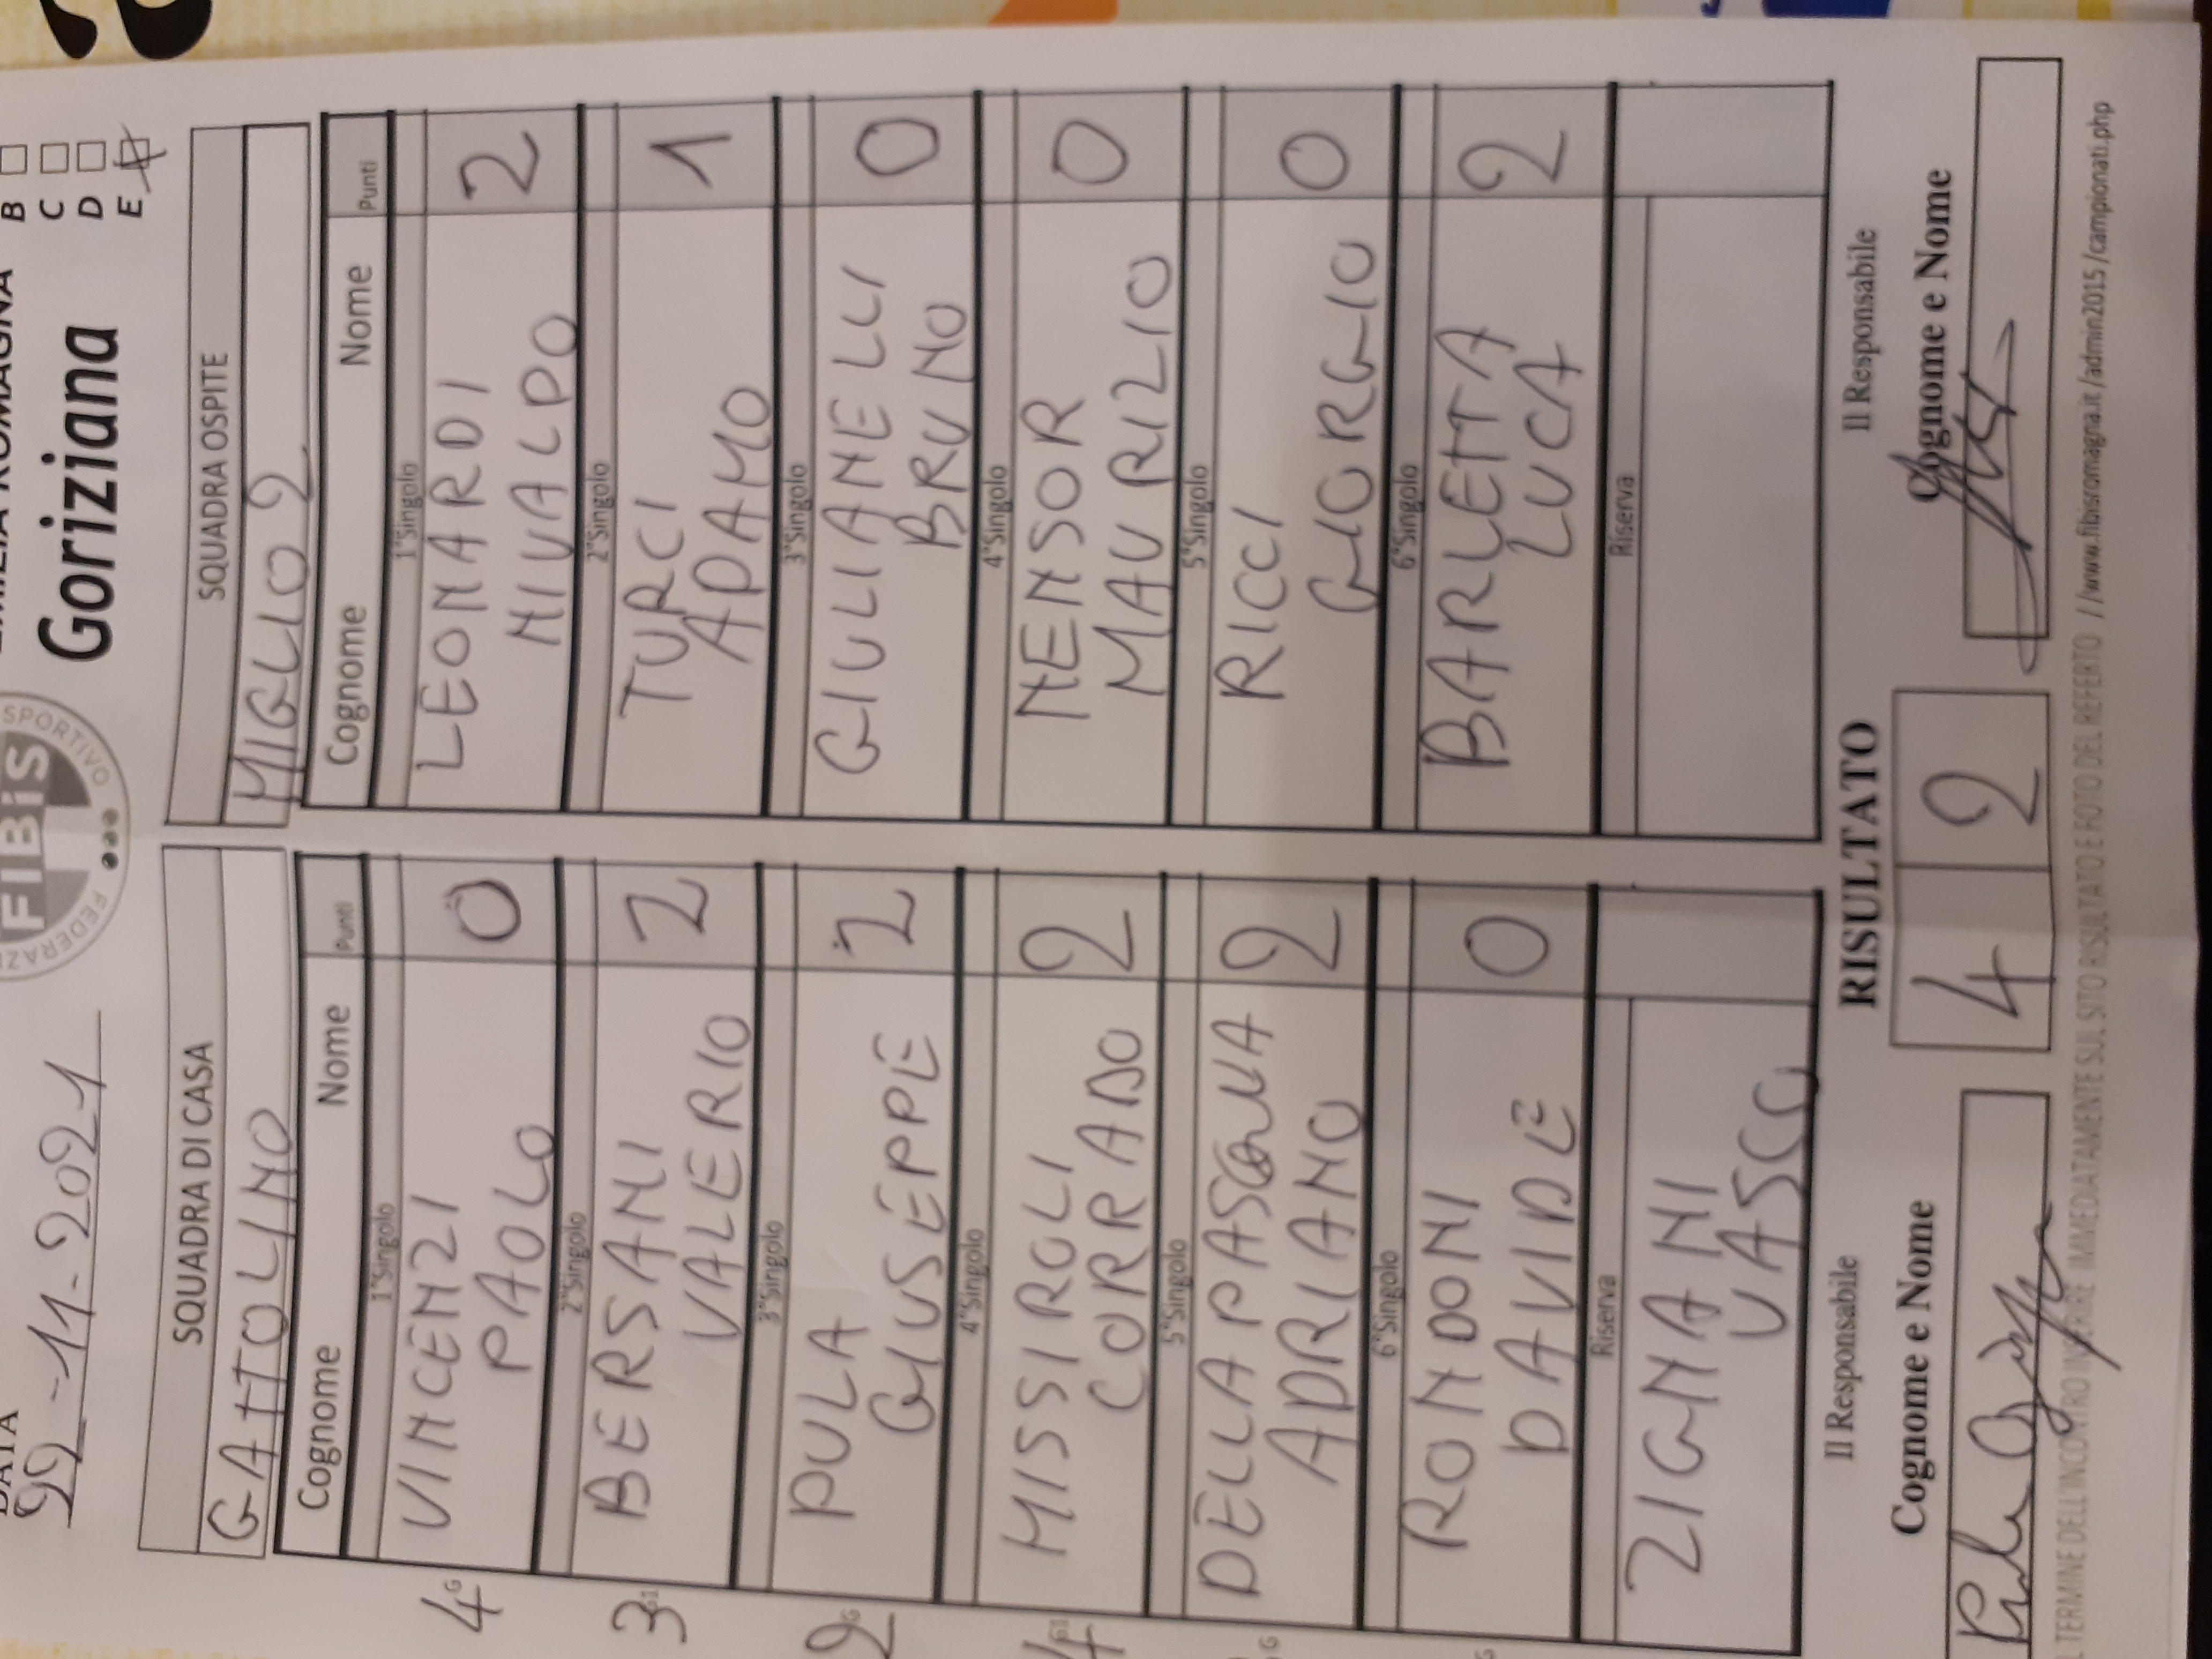 DATA
22-11-2021
FEDERAZI
SPORTIVO
FIBiS
EMILIA ROMAGNA
Goriziana
B
C
D
E
SQUADRA DI CASA
GATTOLINO
Cognome Nome Punti
1°Singolo
4 G VINCENZI
PAOLO 0
2°Singolo
3 BERSANI
VALERIO 2
3°Singolo
2 G PULA
GIUSEPPE 2
4°Singolo
4 MISSIROLI
CORRADO 2
5°Singolo
G DELLA PASQUA
ADRIANO 2
6°Singolo
G RONDONI
DAVIDE 0
Riserva
ZIGNANI
VASCO
SQUADRA OSPITE
MIGLIO 2
Cognome Nome Punti
1°Singolo
LEONARDI
NIVALDO 2
2°Singolo
TURCI
ADAMO 1
3°Singolo
GIULIANELLI
BRUNO 0
4°Singolo
MENSOR
MAURIZIO 0
5°Singolo
RICCI
GIORGIO 0
6°Singolo
BARLETTA
LUCA 2
Riserva
Il Responsabile
Cognome e Nome
RISULTATO
4 2
Il Responsabile
Cognome e Nome
L TERMINE DELL'INCONTRO INSERIRE IMMEDIATAMENTE SUL SITO RISULTATO E FOTO DEL REFERTO //www.fibisromagna.it/admin2015/campionati.php